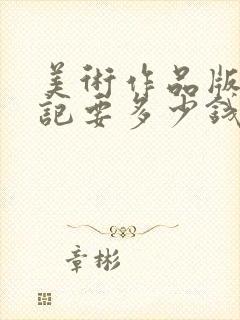 美術作品版
記要多少錢
章彬